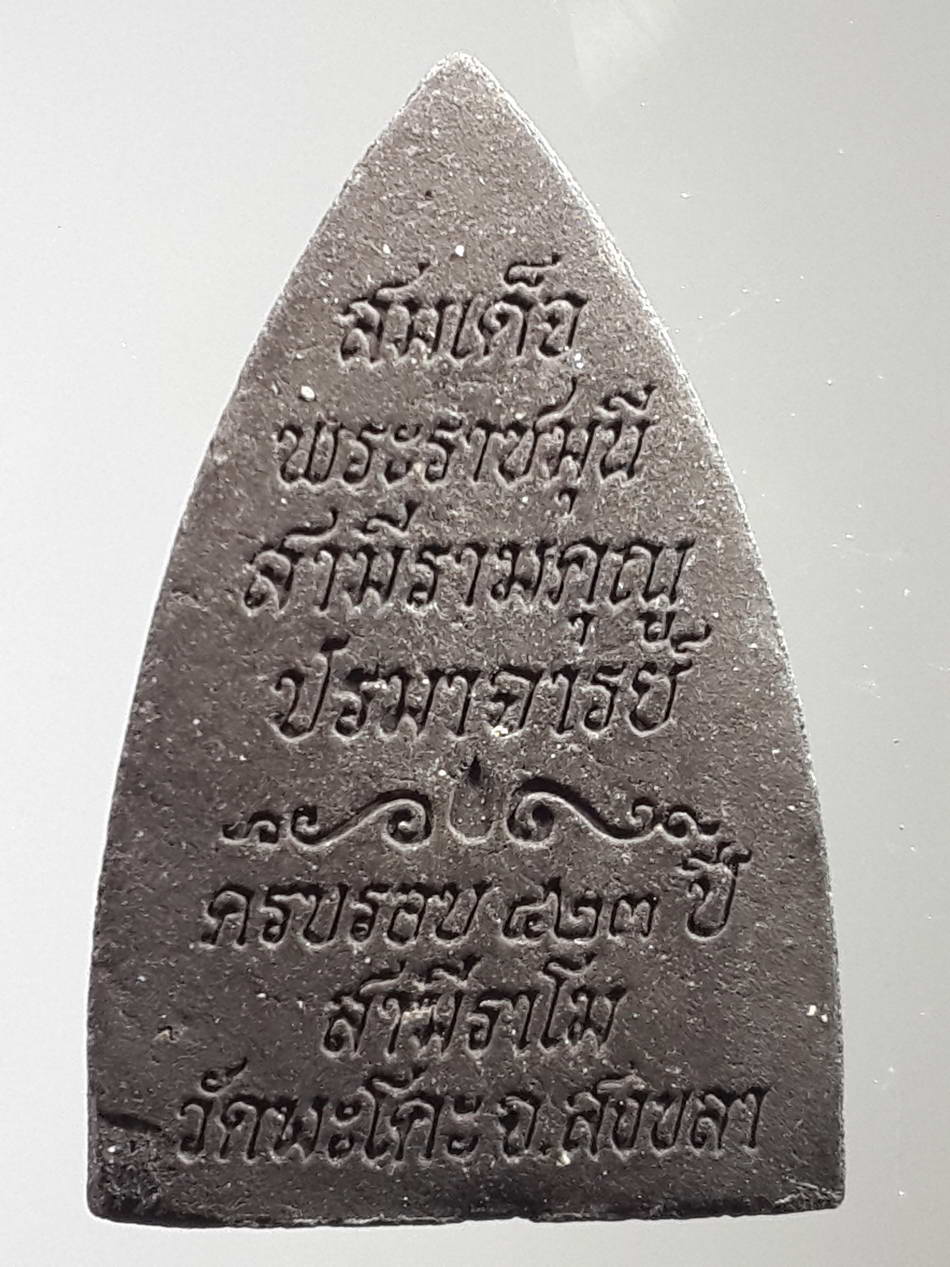 สมเด็จ
พระราชมุนี
สามีรามคุณู
ปรมาจารย์
ครบรอบ ๔๒๓ ปี
สามีราโม
วัดพะโคะ จ.สงขลา